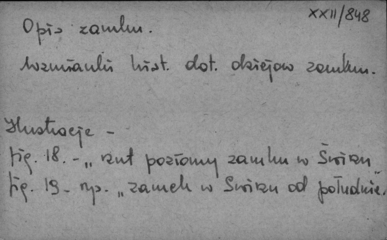 XXII/848
Opis zamku.
Wzmianki hist. dot. dziejow zamku.
Ilustracje -
fig. 18. - „rzut poziomy zamku w Świrzu"
fig. 19 - rys. „zamek w Świrzu od południa".